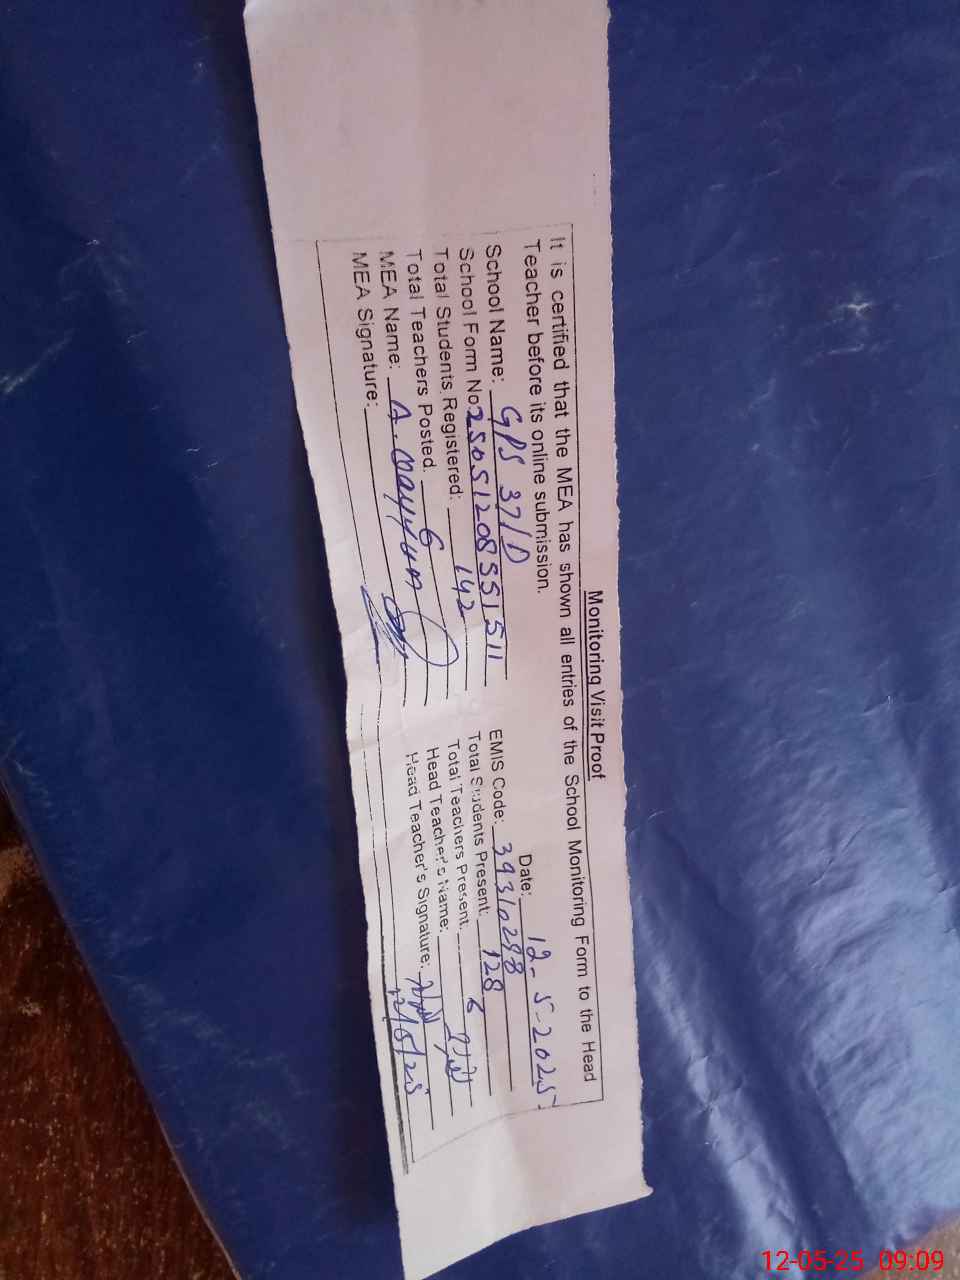 Monitoring Visit Proof
It is certified that the MEA has shown all entries of the School Monitoring Form to the Head
Teacher before its online submission.
Date: 12-5-2025
School Name: GPS 37/D
EMIS Code: 39310298
School Form No 25051208551511
Total Students Present: 128
Total Students Registered: 142
Total Teachers Present: 6
Total Teachers Posted. 6
Head Teacher's Name:
MEA Name: A. Qayyum
Head Teacher's Signature: 12/5/25
MEA Signature:
12-05-25 09:09